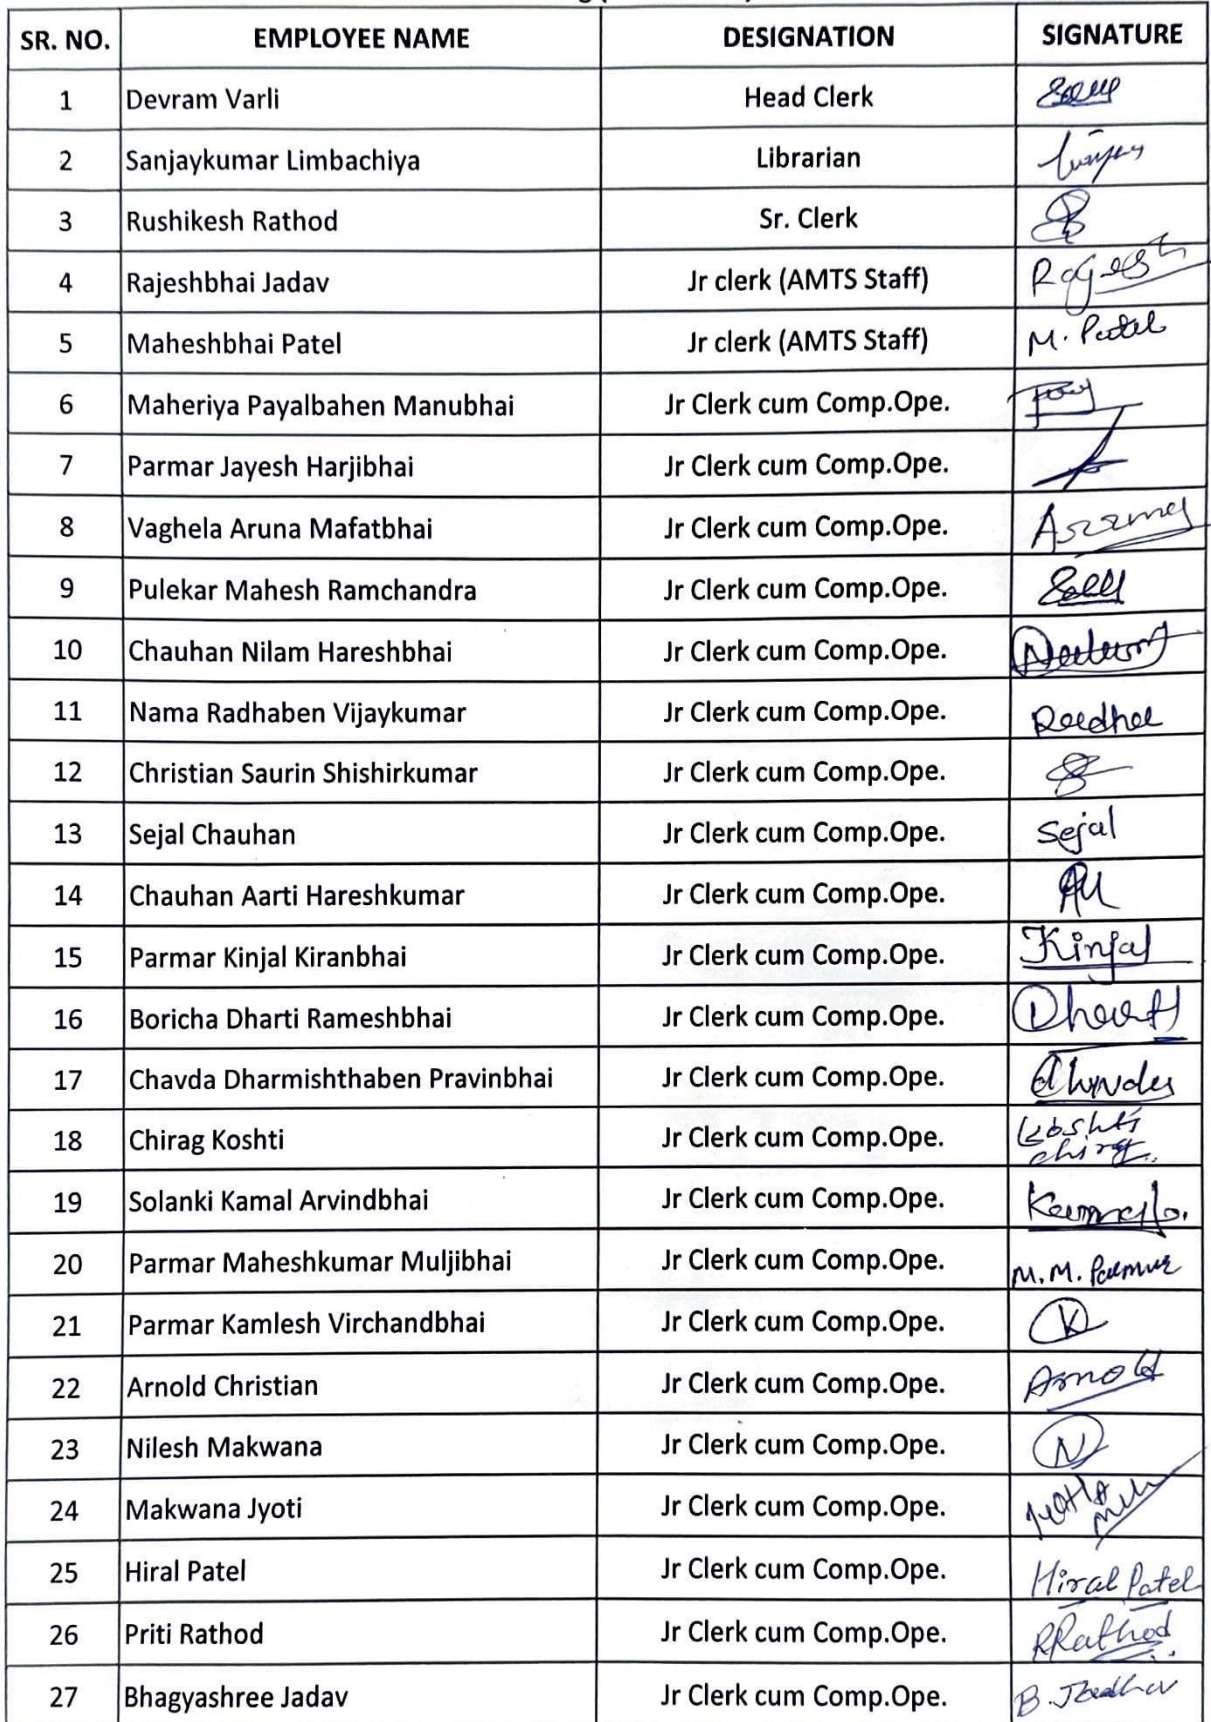 SR. NO. EMPLOYEE NAME DESIGNATION SIGNATURE
1 Devram Varli Head Clerk
2 Sanjaykumar Limbachiya Librarian
3 Rushikesh Rathod Sr. Clerk
4 Rajeshbhai Jadav Jr clerk (AMTS Staff) Rajesh
5 Maheshbhai Patel Jr clerk (AMTS Staff) M. Patel
6 Maheriya Payalbahen Manubhai Jr Clerk cum Comp.Ope.
7 Parmar Jayesh Harjibhai Jr Clerk cum Comp.Ope.
8 Vaghela Aruna Mafatbhai Jr Clerk cum Comp.Ope.
9 Pulekar Mahesh Ramchandra Jr Clerk cum Comp.Ope.
10 Chauhan Nilam Hareshbhai Jr Clerk cum Comp.Ope.
11 Nama Radhaben Vijaykumar Jr Clerk cum Comp.Ope.
12 Christian Saurin Shishirkumar Jr Clerk cum Comp.Ope.
13 Sejal Chauhan Jr Clerk cum Comp.Ope. Sejal
14 Chauhan Aarti Hareshkumar Jr Clerk cum Comp.Ope.
15 Parmar Kinjal Kiranbhai Jr Clerk cum Comp.Ope. Kinjal
16 Boricha Dharti Rameshbhai Jr Clerk cum Comp.Ope.
17 Chavda Dharmishthaben Pravinbhai Jr Clerk cum Comp.Ope.
18 Chirag Koshti Jr Clerk cum Comp.Ope. Koshti
19 Solanki Kamal Arvindbhai Jr Clerk cum Comp.Ope.
20 Parmar Maheshkumar Muljibhai Jr Clerk cum Comp.Ope. M. M. Parmar
21 Parmar Kamlesh Virchandbhai Jr Clerk cum Comp.Ope. K
22 Arnold Christian Jr Clerk cum Comp.Ope. Arnold
23 Nilesh Makwana Jr Clerk cum Comp.Ope. N
24 Makwana Jyoti Jr Clerk cum Comp.Ope.
25 Hiral Patel Jr Clerk cum Comp.Ope. Hiral Patel
26 Priti Rathod Jr Clerk cum Comp.Ope. PRathod
27 Bhagyashree Jadav Jr Clerk cum Comp.Ope. B. Jadhav